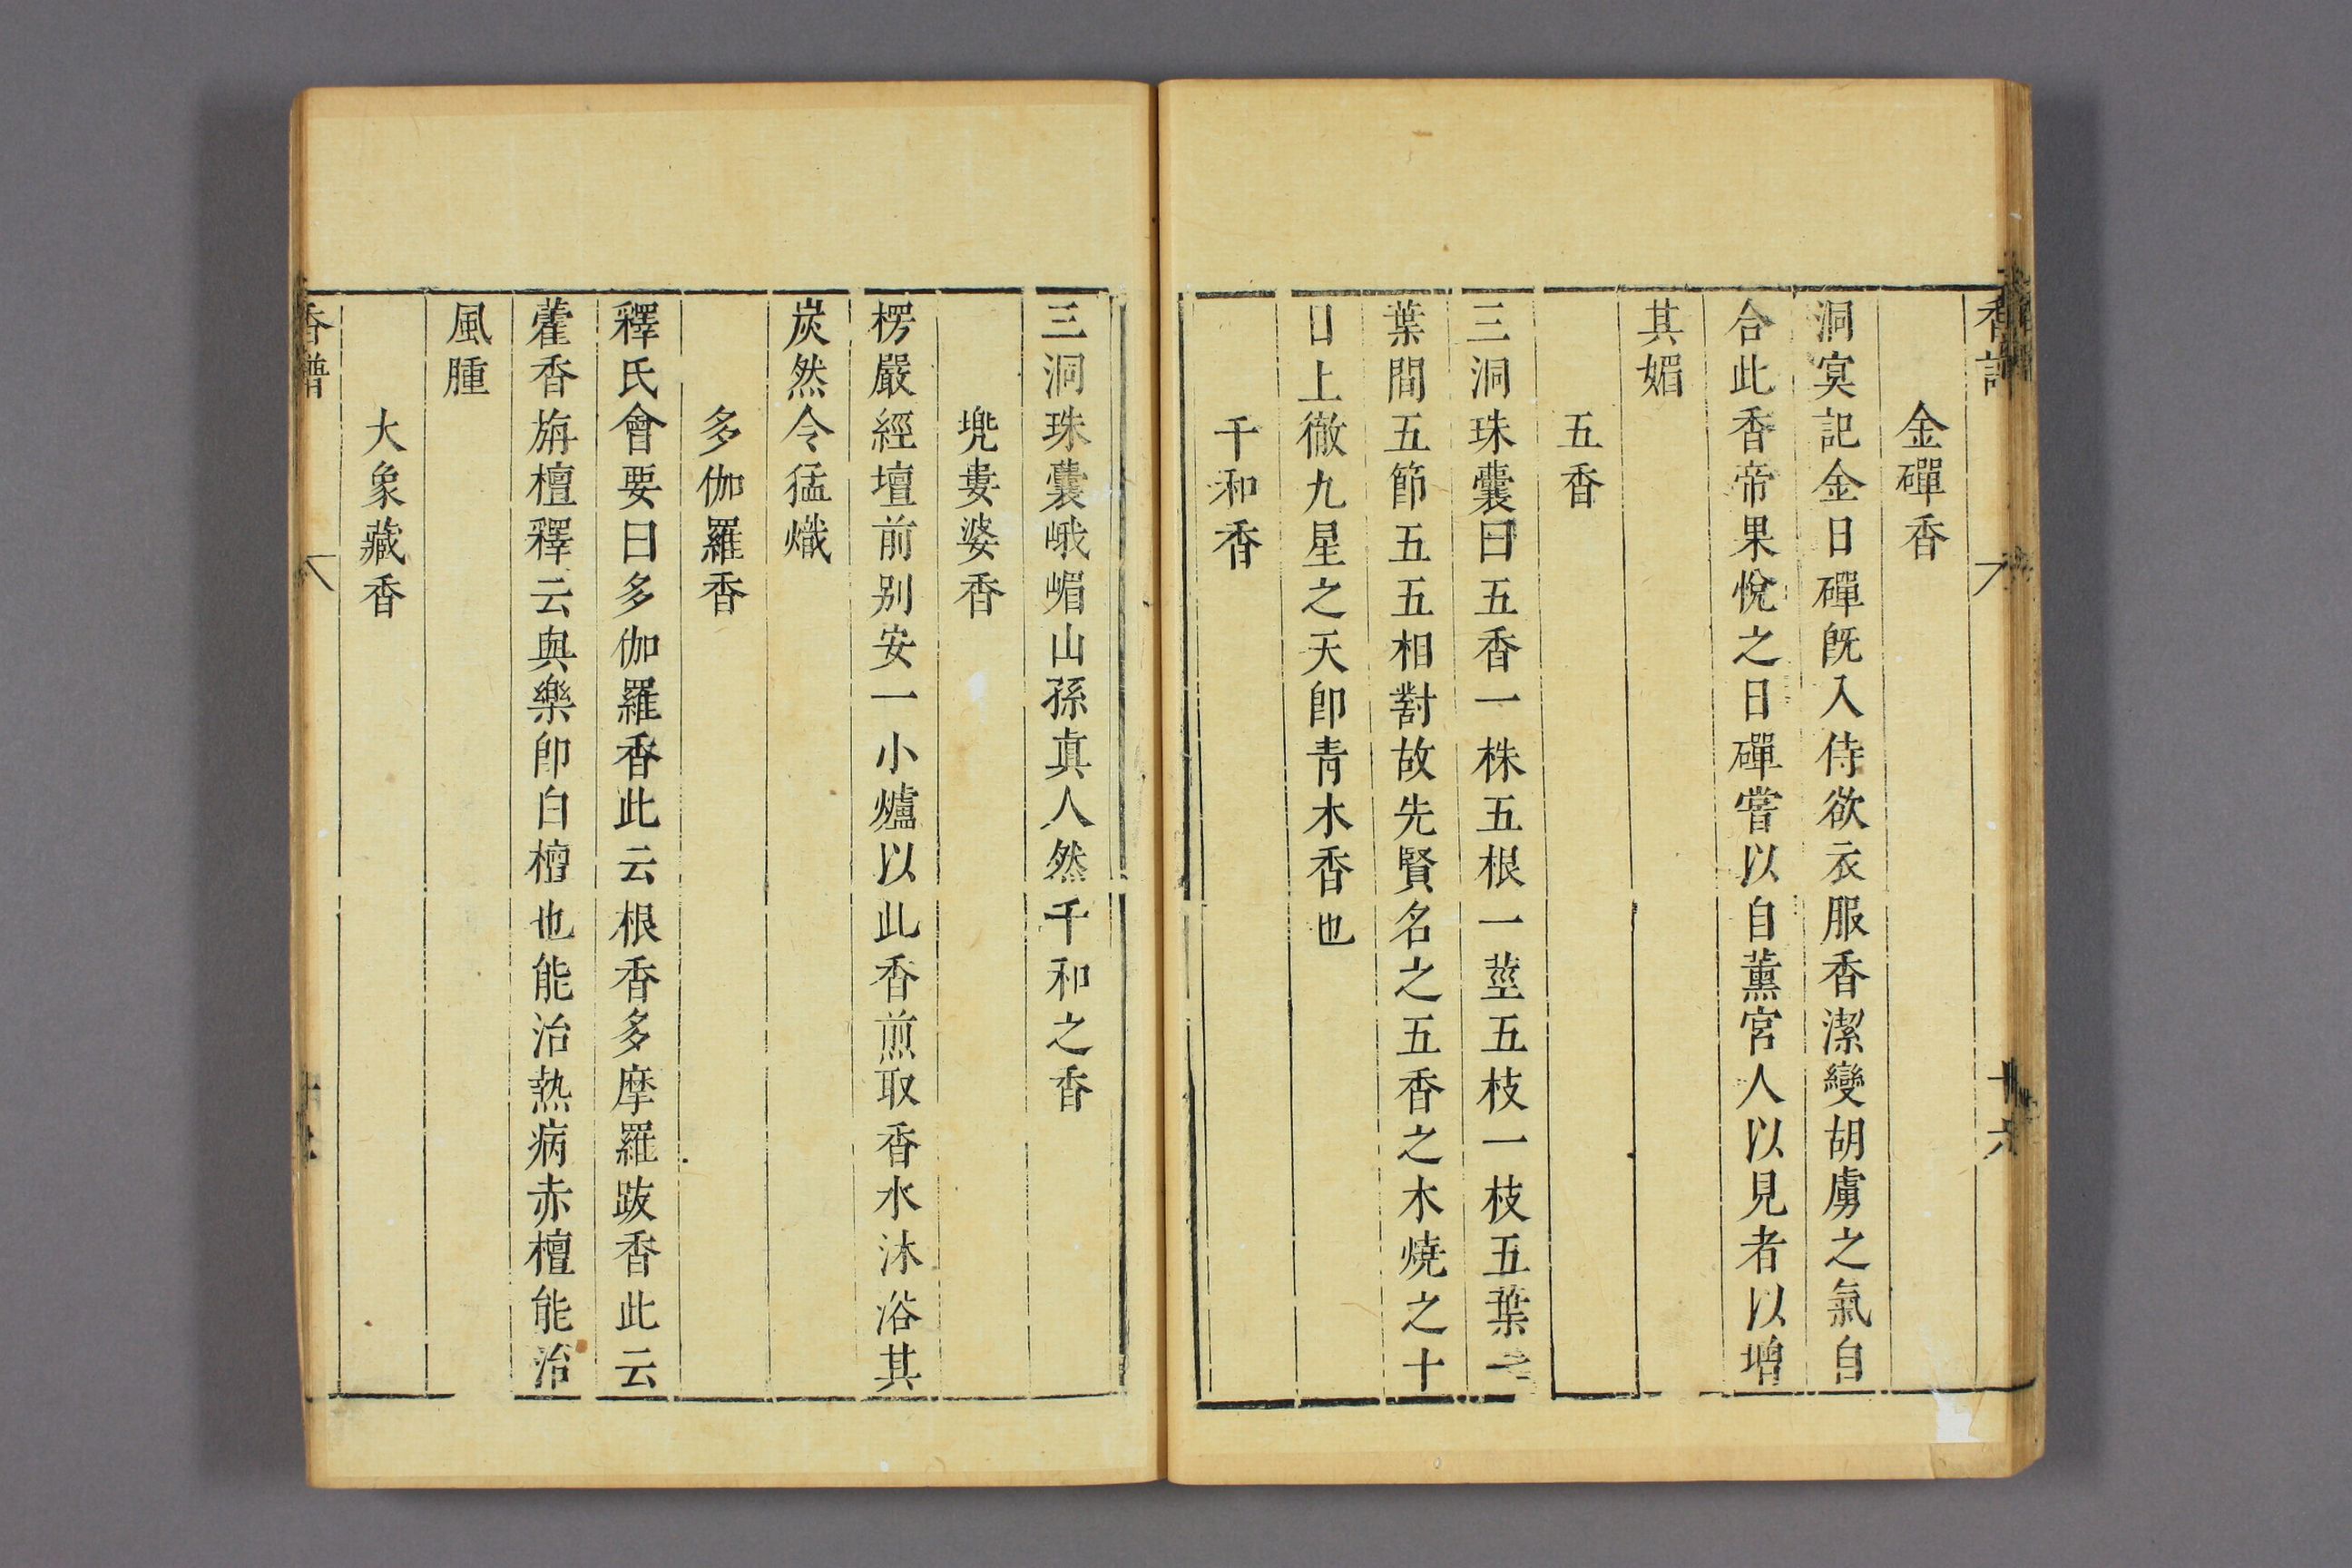 金磾香
洞㝠記金日磾旣入侍欲衣服香潔變胡虜之氣自
合此香帝果悅之日磾嘗以自薰宮人以見者以增
其媚
五香
三洞珠囊曰五香一株五根一莖五枝一枝五葉一
葉間五節五五相對故先賢名之五香之木燒之十
日上徹九星之天卽青木香也
千和香
三洞珠囊峨嵋山孫真人然千和之香
兠婁婆香
楞嚴經壇前别安一小爐以此香煎取香水沐浴其
炭然令猛熾
多伽羅香
釋氏會要曰多伽羅香此云根香多摩羅跋香此云
藿香旃檀釋云與樂卽白檀也能治熱病赤檀能治
風腫
大象藏香
香譜